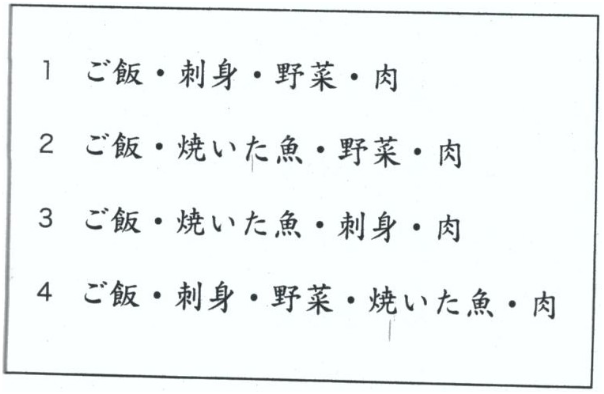 1 ご飯・刺身・野菜・肉
2 ご飯・焼いた魚・野菜・肉
3 ご飯・焼いた魚・刺身・肉
4 ご飯・刺身・野菜・焼いた魚・肉